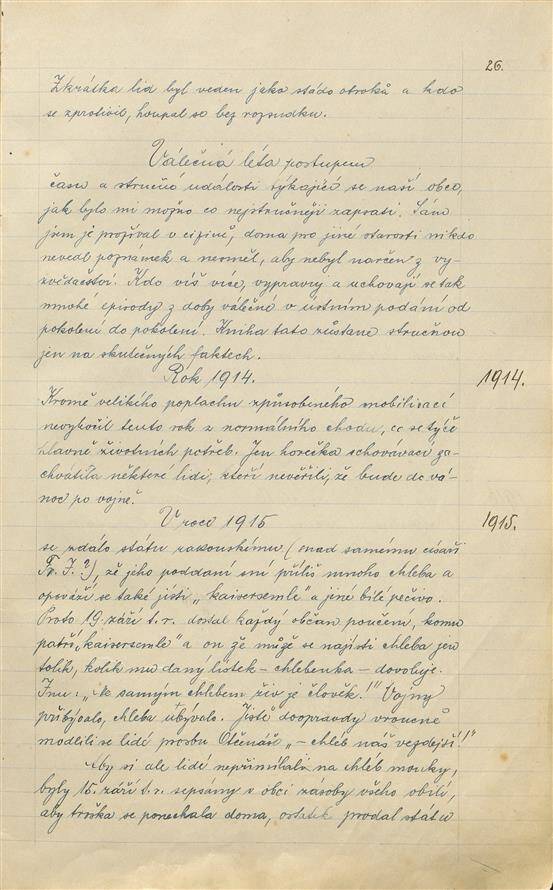 26.
Zkrátka lid byl veden jako stádo otroků a kdo
se zprotivil, houpal se bez rozsudku.
Válečná léta postupem
času a stručné události týkající se naší obce,
jak bylo mi možno co nejstručněji zapsati. Sám
jsem je prožíval v cizině, doma pro jiné starosti nikdo
nevedl poznámek a nesměl, aby nebyl narčen z vy-
zvědačství. Kdo víš více, vypravuj a uchovají se tak
mnohé episody z doby válečné v ústním podání od
pokolení do pokolení. Kniha tato zůstane stručnou
jen na skutečných faktech.
Rok 1914. 1914.
Kromě velikého poplachu způsobeného mobilisací
nevybočil tento rok z normálního chodu, co se týče
hlavně životních potřeb. Jen horečka schovávací za-
chvátila některé lidi, kteří nevěřili, že bude do vá-
noc po vojně.
V roce 1915 1915.
se zdálo státu rakouskému (snad samému císaři
Fr. J. ?), že jeho poddaní sní příliš mnoho chleba a
opováží se také jísti "kaisersemle" a jiné bílé pečivo.
Proto 19. září t. r. dostal každý občan poučení, komu
patří "kaisersemle" a on že může se najísti chleba jen
tolik, kolik mu daný lístek - chlebenka - dovoluje.
Inu: "Ne samým chlebem živ je člověk!" Vojny
přibývalo, chleba ubývalo. Jistě doopravdy vroucně
modlili se lidé prosbu Otčenáše "- chléb náš vezdejší!"
Aby si ale lidé nepřimíchali na chléb mouky,
byly 15. září t. r. sepsány v obci zásoby všeho obilí,
aby troška se ponechala doma, ostatek prodal státu